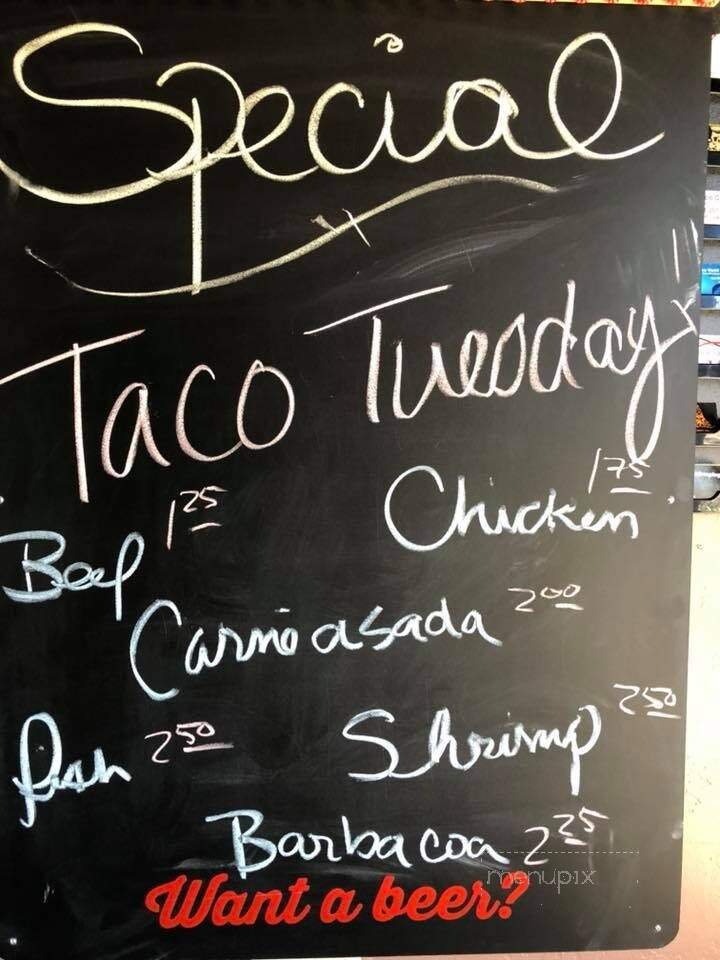 Special
Taco Tuesday
Beef 1 25
Chicken 1 75
Carne asada 2 00
fish 2 50
Shrimp 2 50
Barbacoa 2 25
menupix
Want a beer?